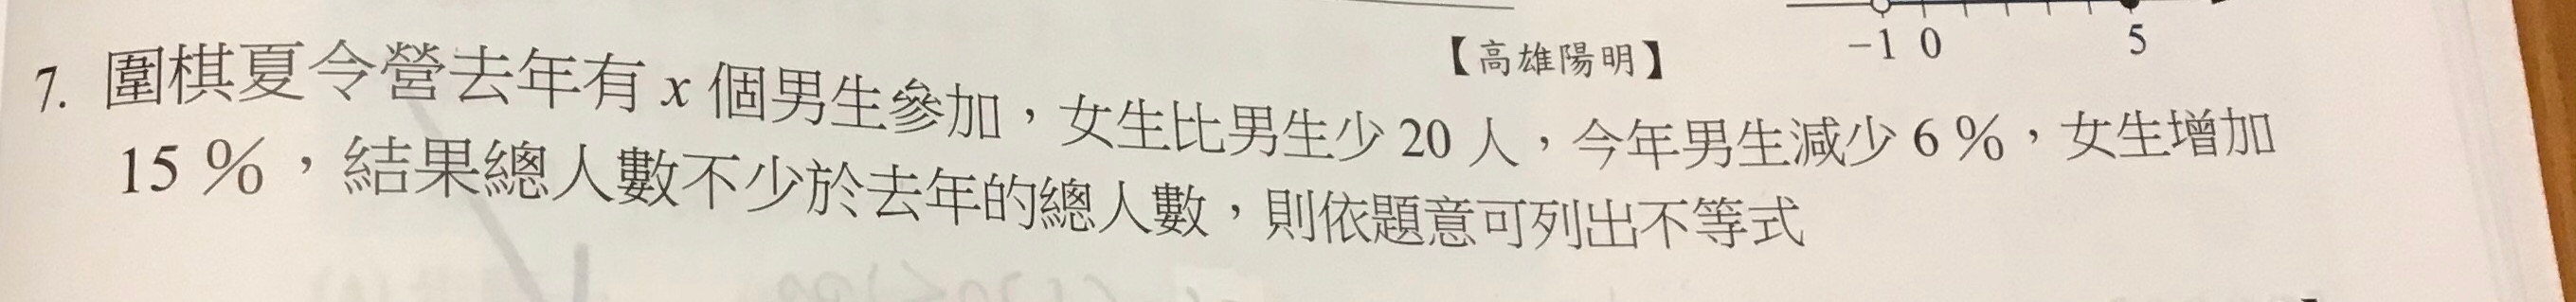 【高雄陽明】
-1 0 5
7. 圍棋夏令營去年有 x 個男生參加，女生比男生少 20 人，今年男生減少 6 %，女生增加
15 %，結果總人數不少於去年的總人數，則依題意可列出不等式